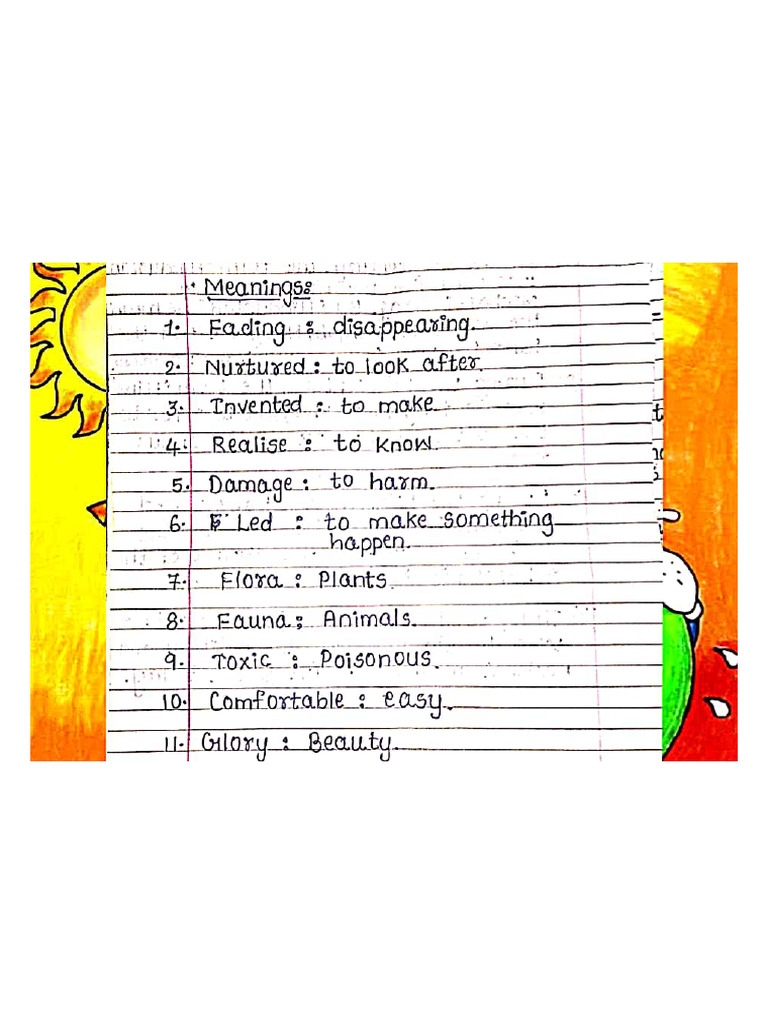 Meanings:
1. Fading : disappearing.
2. Nurtured : to look after.
3. Invented : to make.
4. Realise : to know.
5. Damage : to harm.
6. Led : to make something
happen.
7. Flora : Plants.
8. Fauna ; Animals.
9. Toxic : Poisonous.
10. Comfortable : easy.
11. Glory : Beauty.